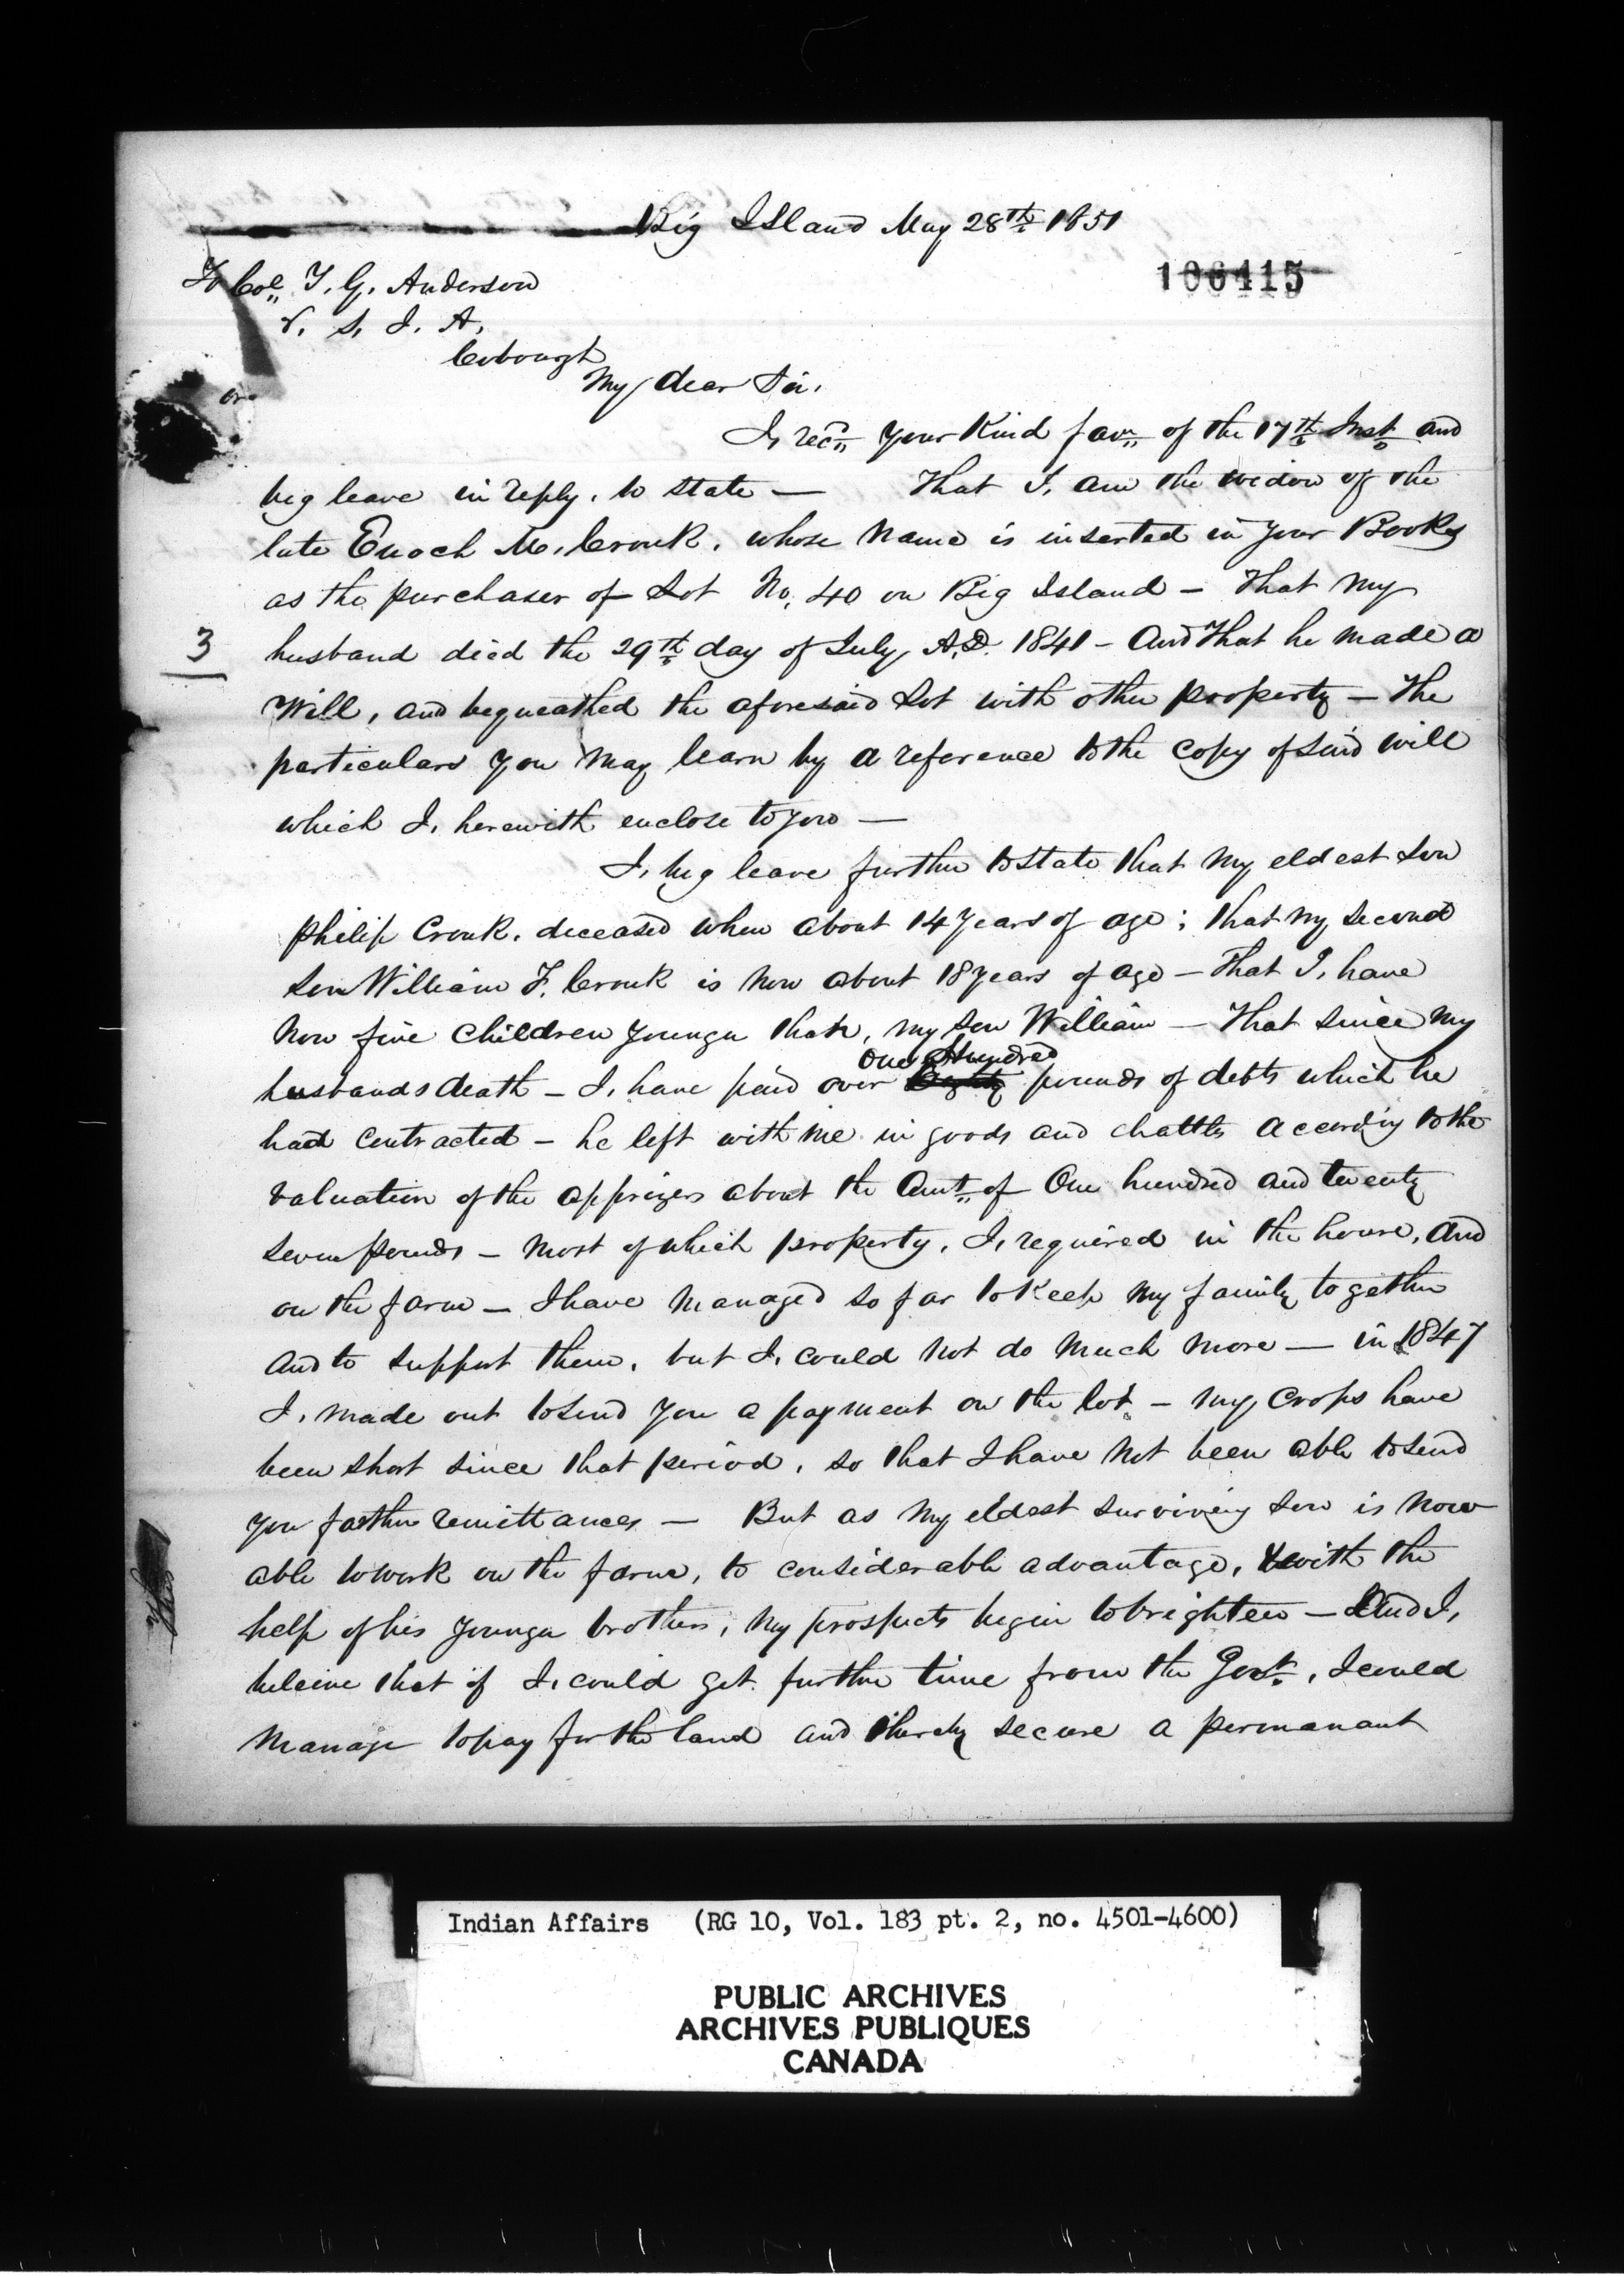 Big Island May 28th 1851
106415
To Col. T. G. Anderson
V. S. I. A.
Cobourgh
My dear Sir,
I, recd. your Kind favr. of the 17th Inst. and
beg leave in reply, to state — That I, am the widow of the
late Enoch M. Cronk, whose name is inserted in your Books
as the purchaser of Lot No. 40 on Big Island — That my
3
husband died the 29th day of July A.D. 1841 — And That he made a
Will, and bequeathed the aforesaid Lot with other property — The
particulars you may learn by a reference to the copy of said will
which I, herewith enclose to you —
I, beg leave further to state that my eldest son
Philip Cronk, deceased when about 14 years of age; that my second
son William F. Cronk is now about 18 years of age — That I, have
now five children younger than, my son William — That since my
One Hundred
husbands death — I, have paid over pounds of debts which he
had contracted — he left with me in goods and chattls according to the
valuation of the apprizers about the Amt. of One hundred and twenty
seven pounds — most of which property, I, required in the house, and
on the farm — I have managed so far to Keep my family together
and to support them, but I, could not do much more — in 1847
I, made out to send you a payment on the lot — my crops have
been short since that period, so that I have not been able to send
you farther remittances — But as my eldest surviving son is now
able to work on the farm, to considerable advantage, with the
help of his younger brothers, my prospects begin to brighten — And I,
beleive that if I, could get further time from the Govt., I could
manage to pay for the land and thereby secure a permanant
Indian Affairs (RG 10, Vol. 183 pt. 2, no. 4501-4600)
PUBLIC ARCHIVES
ARCHIVES PUBLIQUES
CANADA